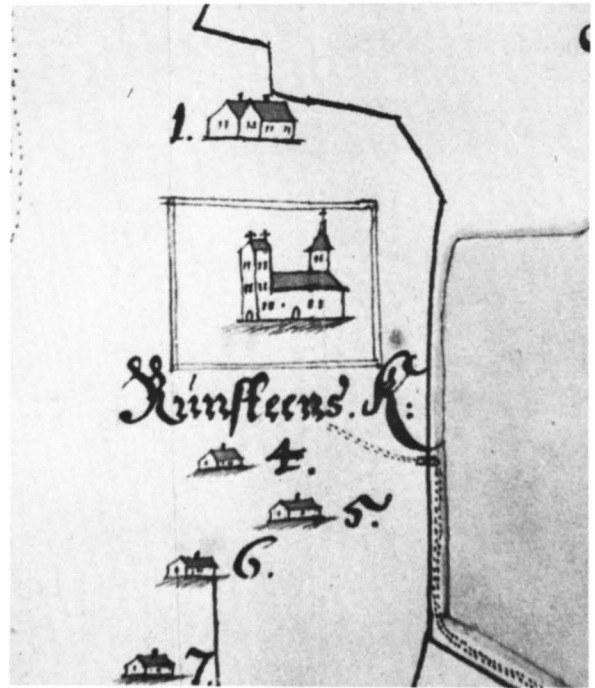 1.
Rúnſteens. K:
4.
5.
6.
7.